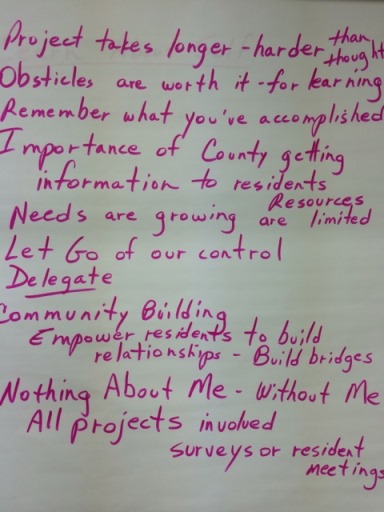 Project takes longer - harder than thought
Obstacles are worth it - for learning
Remember what you've accomplished
Importance of County getting
information to residents
Needs are growing Resources are limited
Let Go of our control
Delegate
Community Building
Empower residents to build
relationships - Build bridges
Nothing About Me - Without Me
All projects involved
surveys or resident
meetings